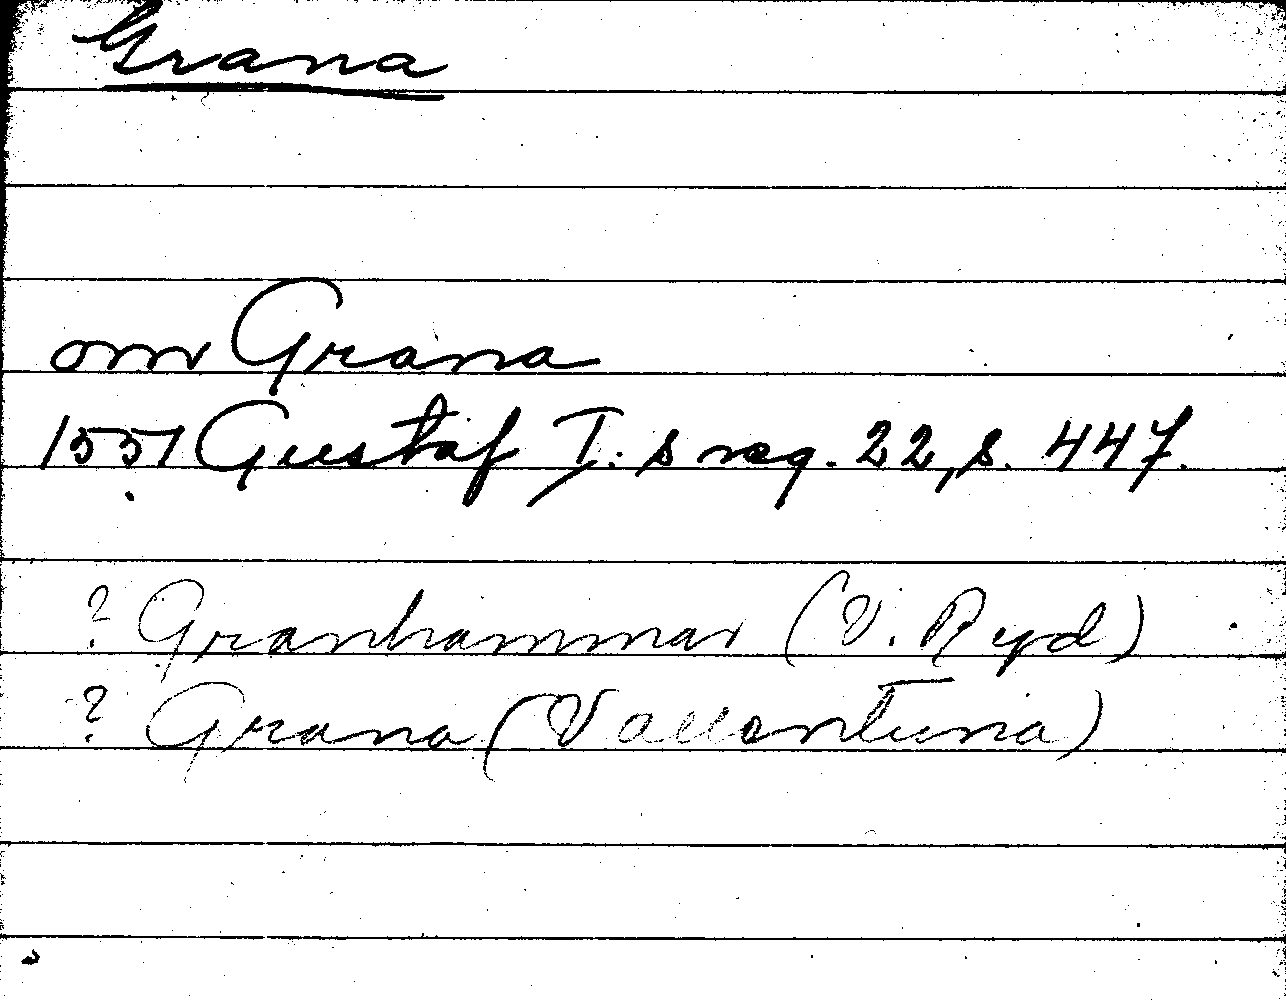 Grana
om Grana
1551 Gustaf I:s reg. 22, s. 447.
? Granhammar (V. Ryd)
? Grana (Vallentuna)